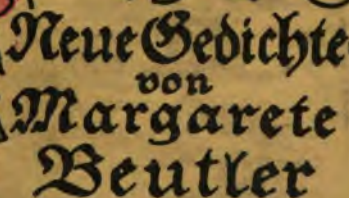 Neue Gedichte
von
Margarete
Beutler